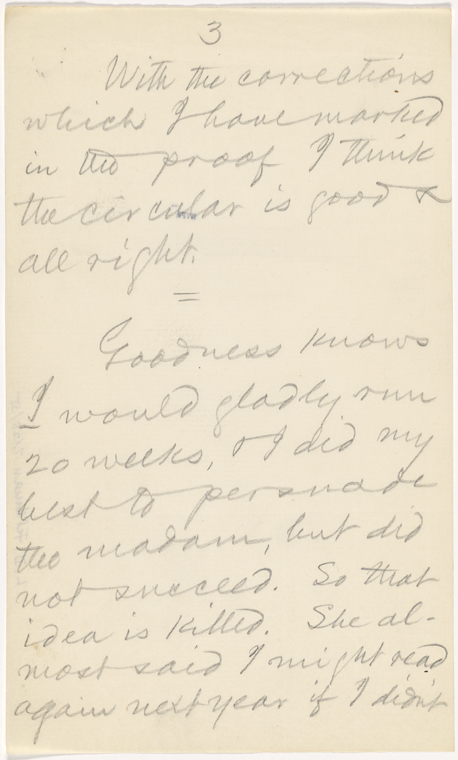 3
With the corrections
which I have marked
in the proof I think
the circular is good &
all right.
=
Goodness knows
I would gladly run
20 weeks, & I did my
best to persuade
the madam, but did
not succeed. So that
idea is killed. She al-
most said I might read
again next year if I didn't